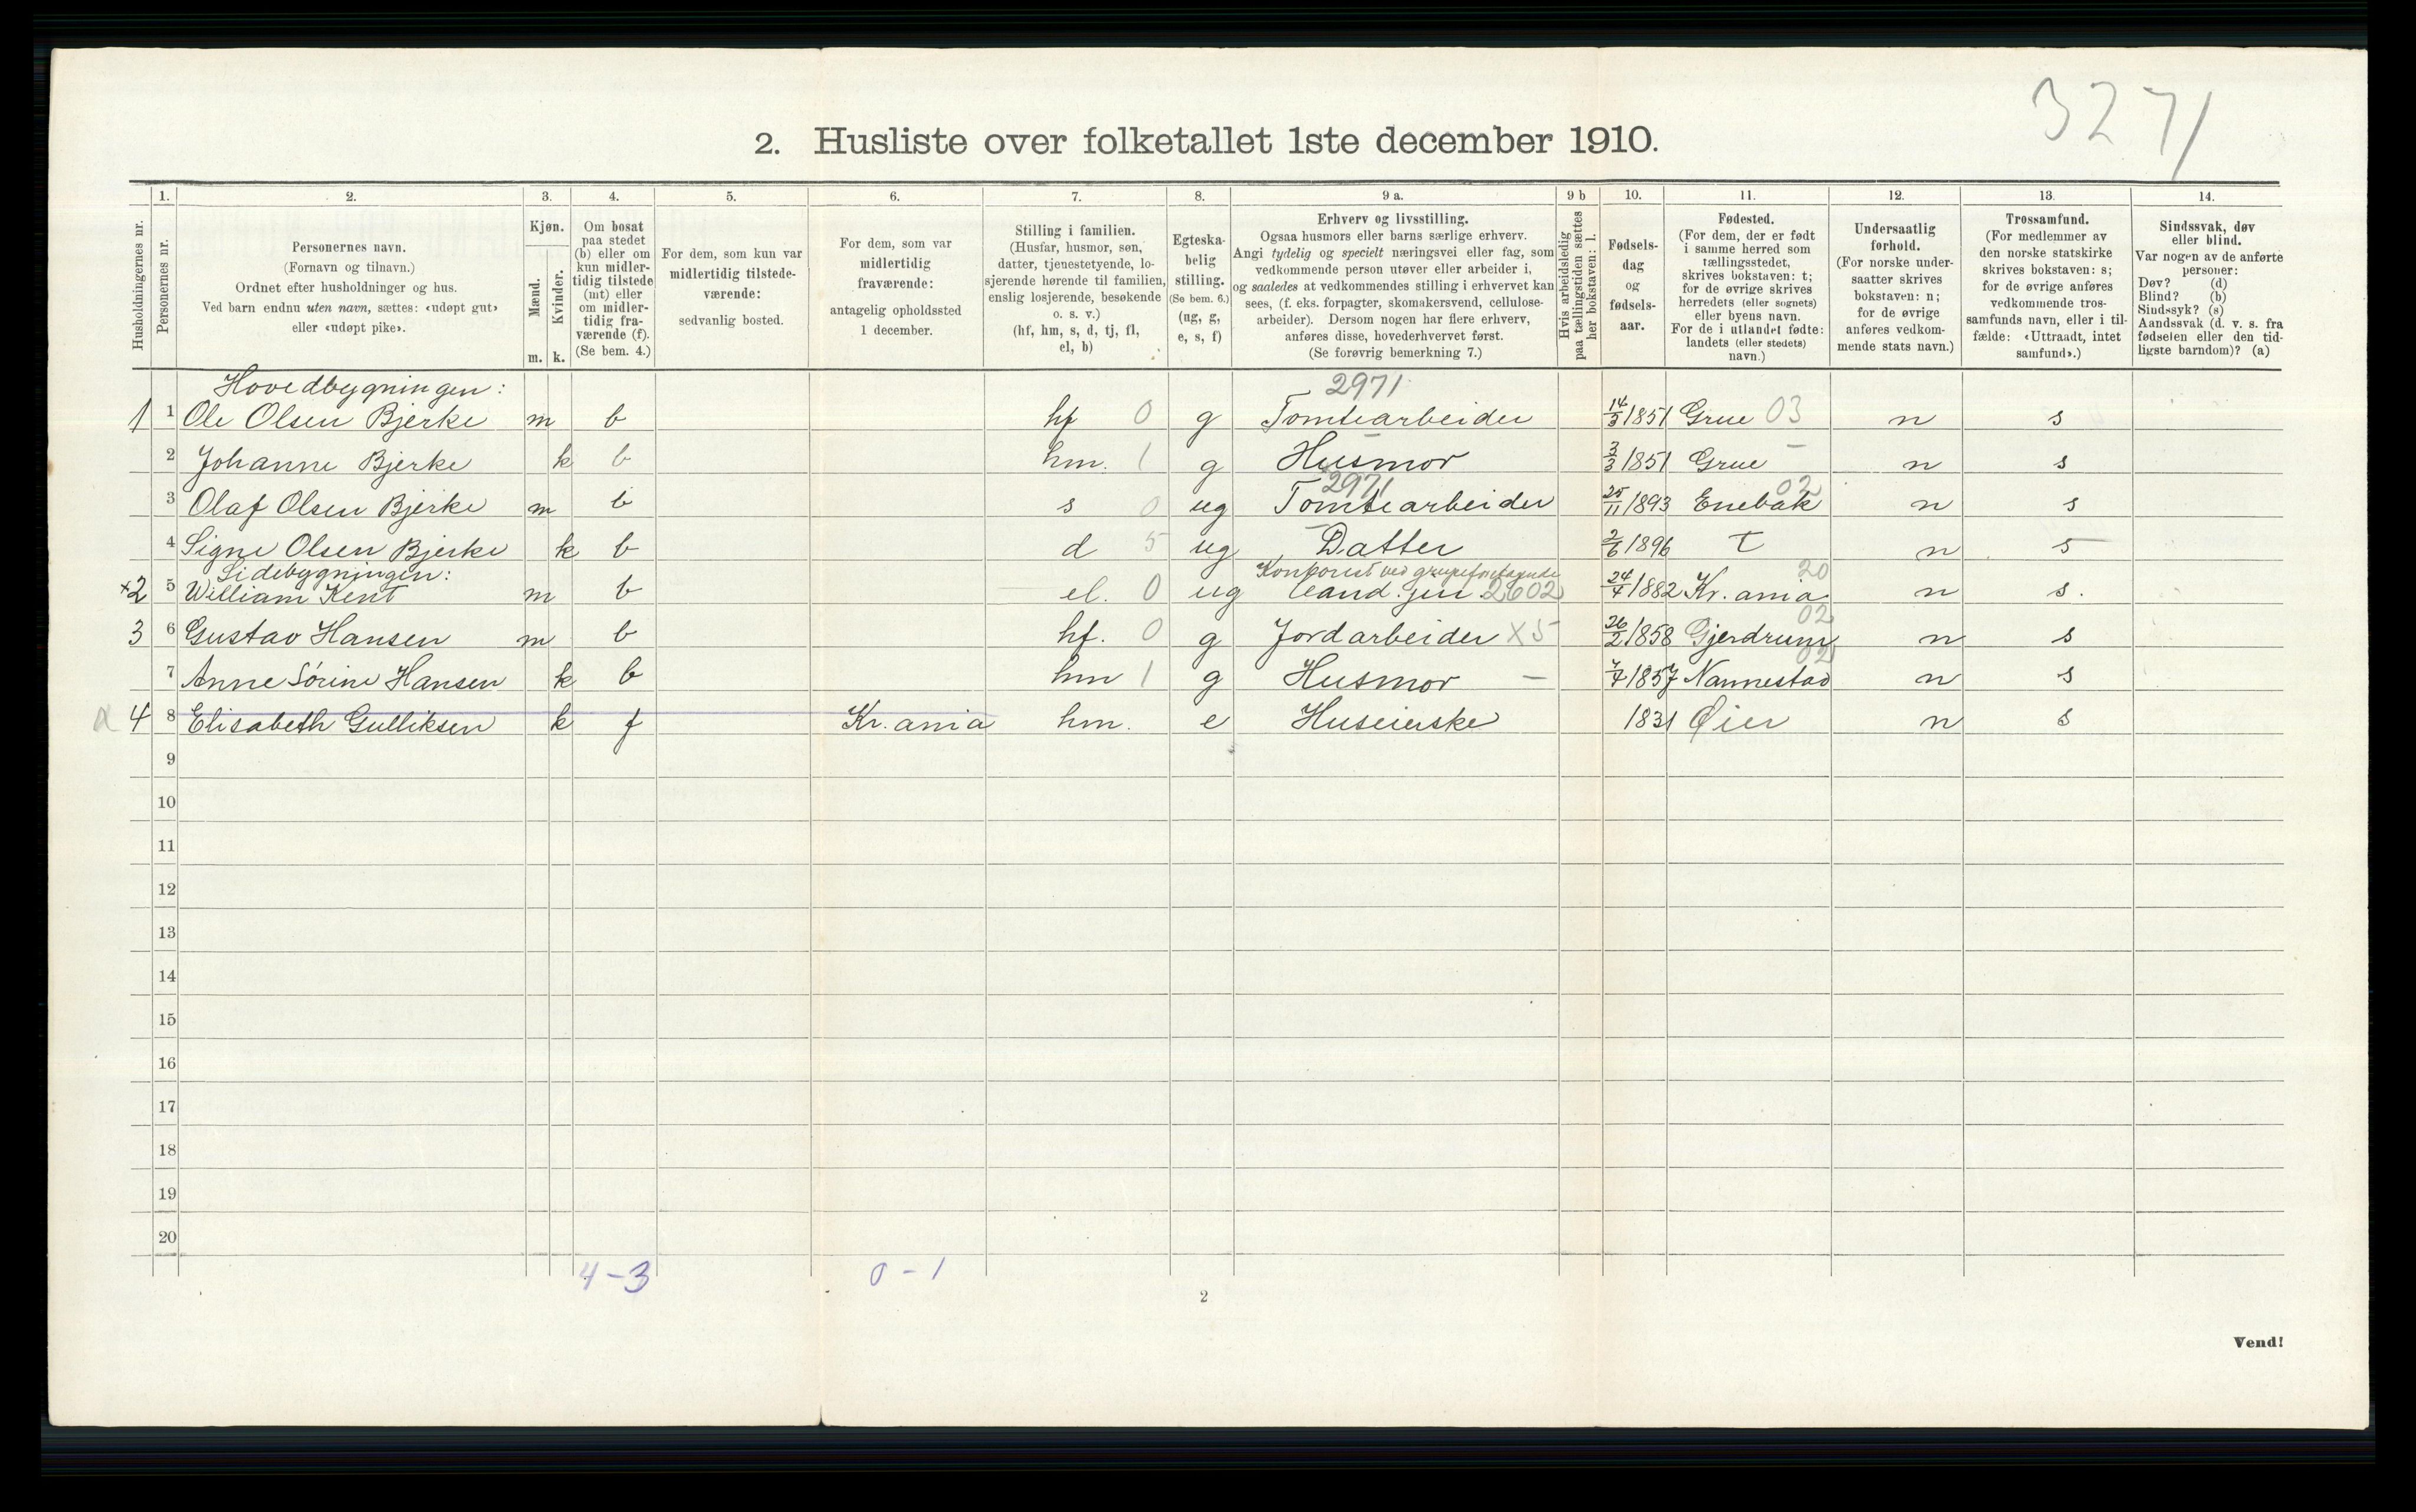 3271
2. Husliste over folketallet 1ste december 1910.
1. 2. 3. 4. 5. 6. 7. 8. 9 a. 9 b 10. 11. 12. 13. 14.
Husholdningernes nr.
Personernes nr.
Personernes navn.
(Fornavn og tilnavn.)
Ordnet efter husholdninger og hus.
Ved barn endnu uten navn, sættes: «udøpt gut»
eller «udøpt pike».
Kjøn.
Mænd.
Kvinder.
m. k.
Om bosat
paa stedet
(b) eller om
kun midler-
tidig tilstede
(mt) eller
om midler-
tidig fra-
værende (f).
(Se bem. 4.)
For dem, som kun var
midlertidig tilstede-
værende:
sedvanlig bosted.
For dem, som var
midlertidig
fraværende:
antagelig opholdssted
1 december.
Stilling i familien.
(Husfar, husmor, søn,
datter, tjenestetyende, lo-
sjerende hørende til familien,
enslig losjerende, besøkende
o. s. v.)
(hf, hm, s, d, tj, fl,
el, b)
Egteska-
belig
stilling.
(Se bem. 6.)
(ug, g,
e, s, f)
Erhverv og livsstilling.
Ogsaa husmors eller barns særlige erhverv.
Angi tydelig og specielt næringsvei eller fag, som
vedkommende person utøver eller arbeider i,
og saaledes at vedkommendes stilling i erhvervet kan
sees, (f. eks. forpagter, skomakersvend, cellulose-
arbeider). Dersom nogen har flere erhverv,
anføres disse, hovederhvervet først.
(Se forøvrig bemerkning 7.)
Hvis arbeidsledig
paa tællingstiden sættes
her bokstaven: l.
Fødsels-
dag
og
fødsels-
aar.
Fødested.
(For dem, der er født
i samme herred som
tællingsstedet,
skrives bokstaven: t;
for de øvrige skrives
herredets (eller sognets)
eller byens navn.
For de i utlandet fødte:
landets (eller stedets)
navn.)
Undersaatlig
forhold.
(For norske under-
saatter skrives
bokstaven: n;
for de øvrige
anføres vedkom-
mende stats navn.)
Trossamfund.
(For medlemmer av
den norske statskirke
skrives bokstaven: s;
for de øvrige anføres
vedkommende tros-
samfunds navn, eller i til-
fælde: «Uttraadt, intet
samfund».)
Sindssvak, døv
eller blind.
Var nogen av de anførte
personer:
Døv? (d)
Blind? (b)
Sindssyk? (s)
Aandssvak (d. v. s. fra
fødselen eller den tid-
ligste barndom)? (a)
Hovedbygningen: 2971
1 1 Ole Olsen Bjerke m b hf 0 g Tomtearbeider 14/3 1851 Grue 03 n s
2 Johanne Bjerke k b hm. 1 g Husmor - 3/3 1851 Grue - n s
2971 02
3 Olaf Olsen Bjerke m b s 0 ug Tomtearbeider 25/11 1893 Enebak n s
4 Signe Olsen Bjerke k b d 5 ug Datter 2/6 1896 t n s
Sidebygningen: 20
x2 5 William Kent m b el. 0 ug Cand. jur. 2602 24/4 1882 Kr.ania n s.
02
3 6 Gustav Hansen m b hf. 0 g Jordarbeider x5 26/2 1858 Gjerdrum n s
02
7 Anne Sörine Hansen k b hm 1 g Husmor - 7/4 1857 Nannestad n s
a 4 8 Elisabeth Gulliksen k f Kr.ania hm. e Huseierske 1831 Øier n s
9
10
11
12
13
14
15
16
17
18
19
20
4-3 0-1
2
Vend!